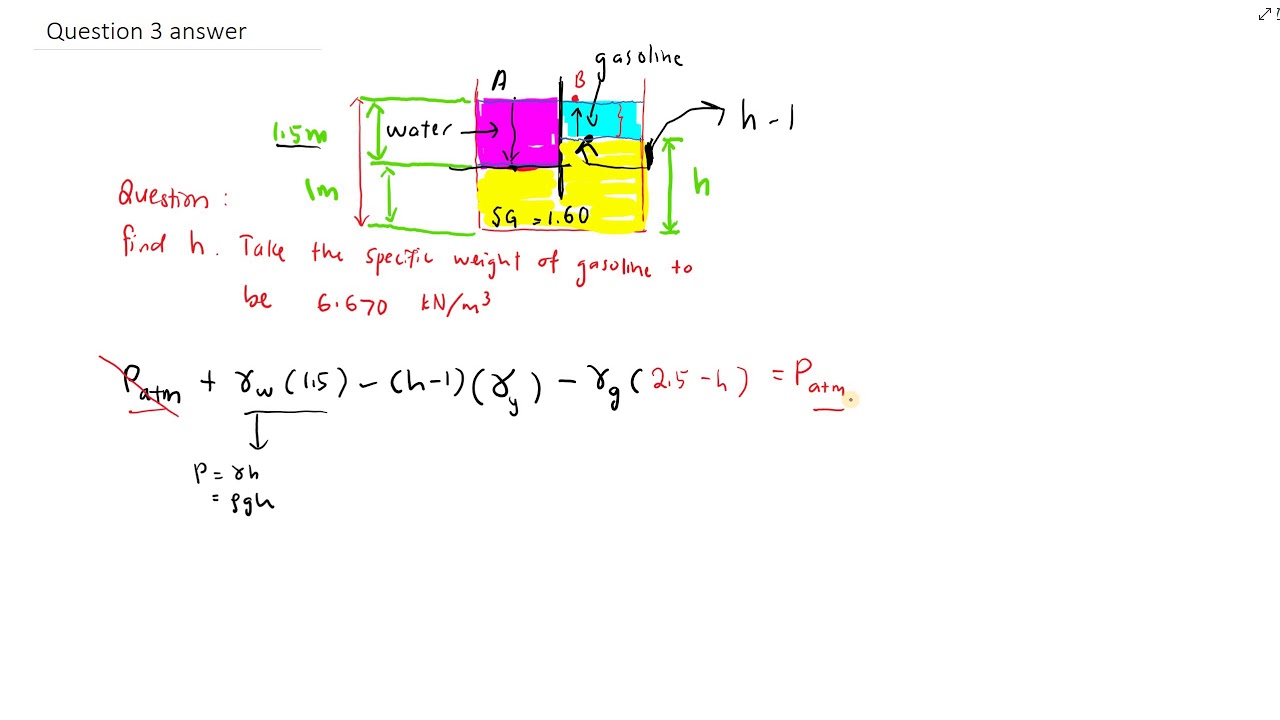 Question 3 answer
gasoline
A
B
water
h - 1
1.5m
1m
h
SG = 1.60
Question :
find h. Take the specific weight of gasoline to
be 6.670 kN/m³
Patm + γw (1.5) - (h-1)(γy) - γg (2.5 - h) = Patm
P = γh
= ρgh